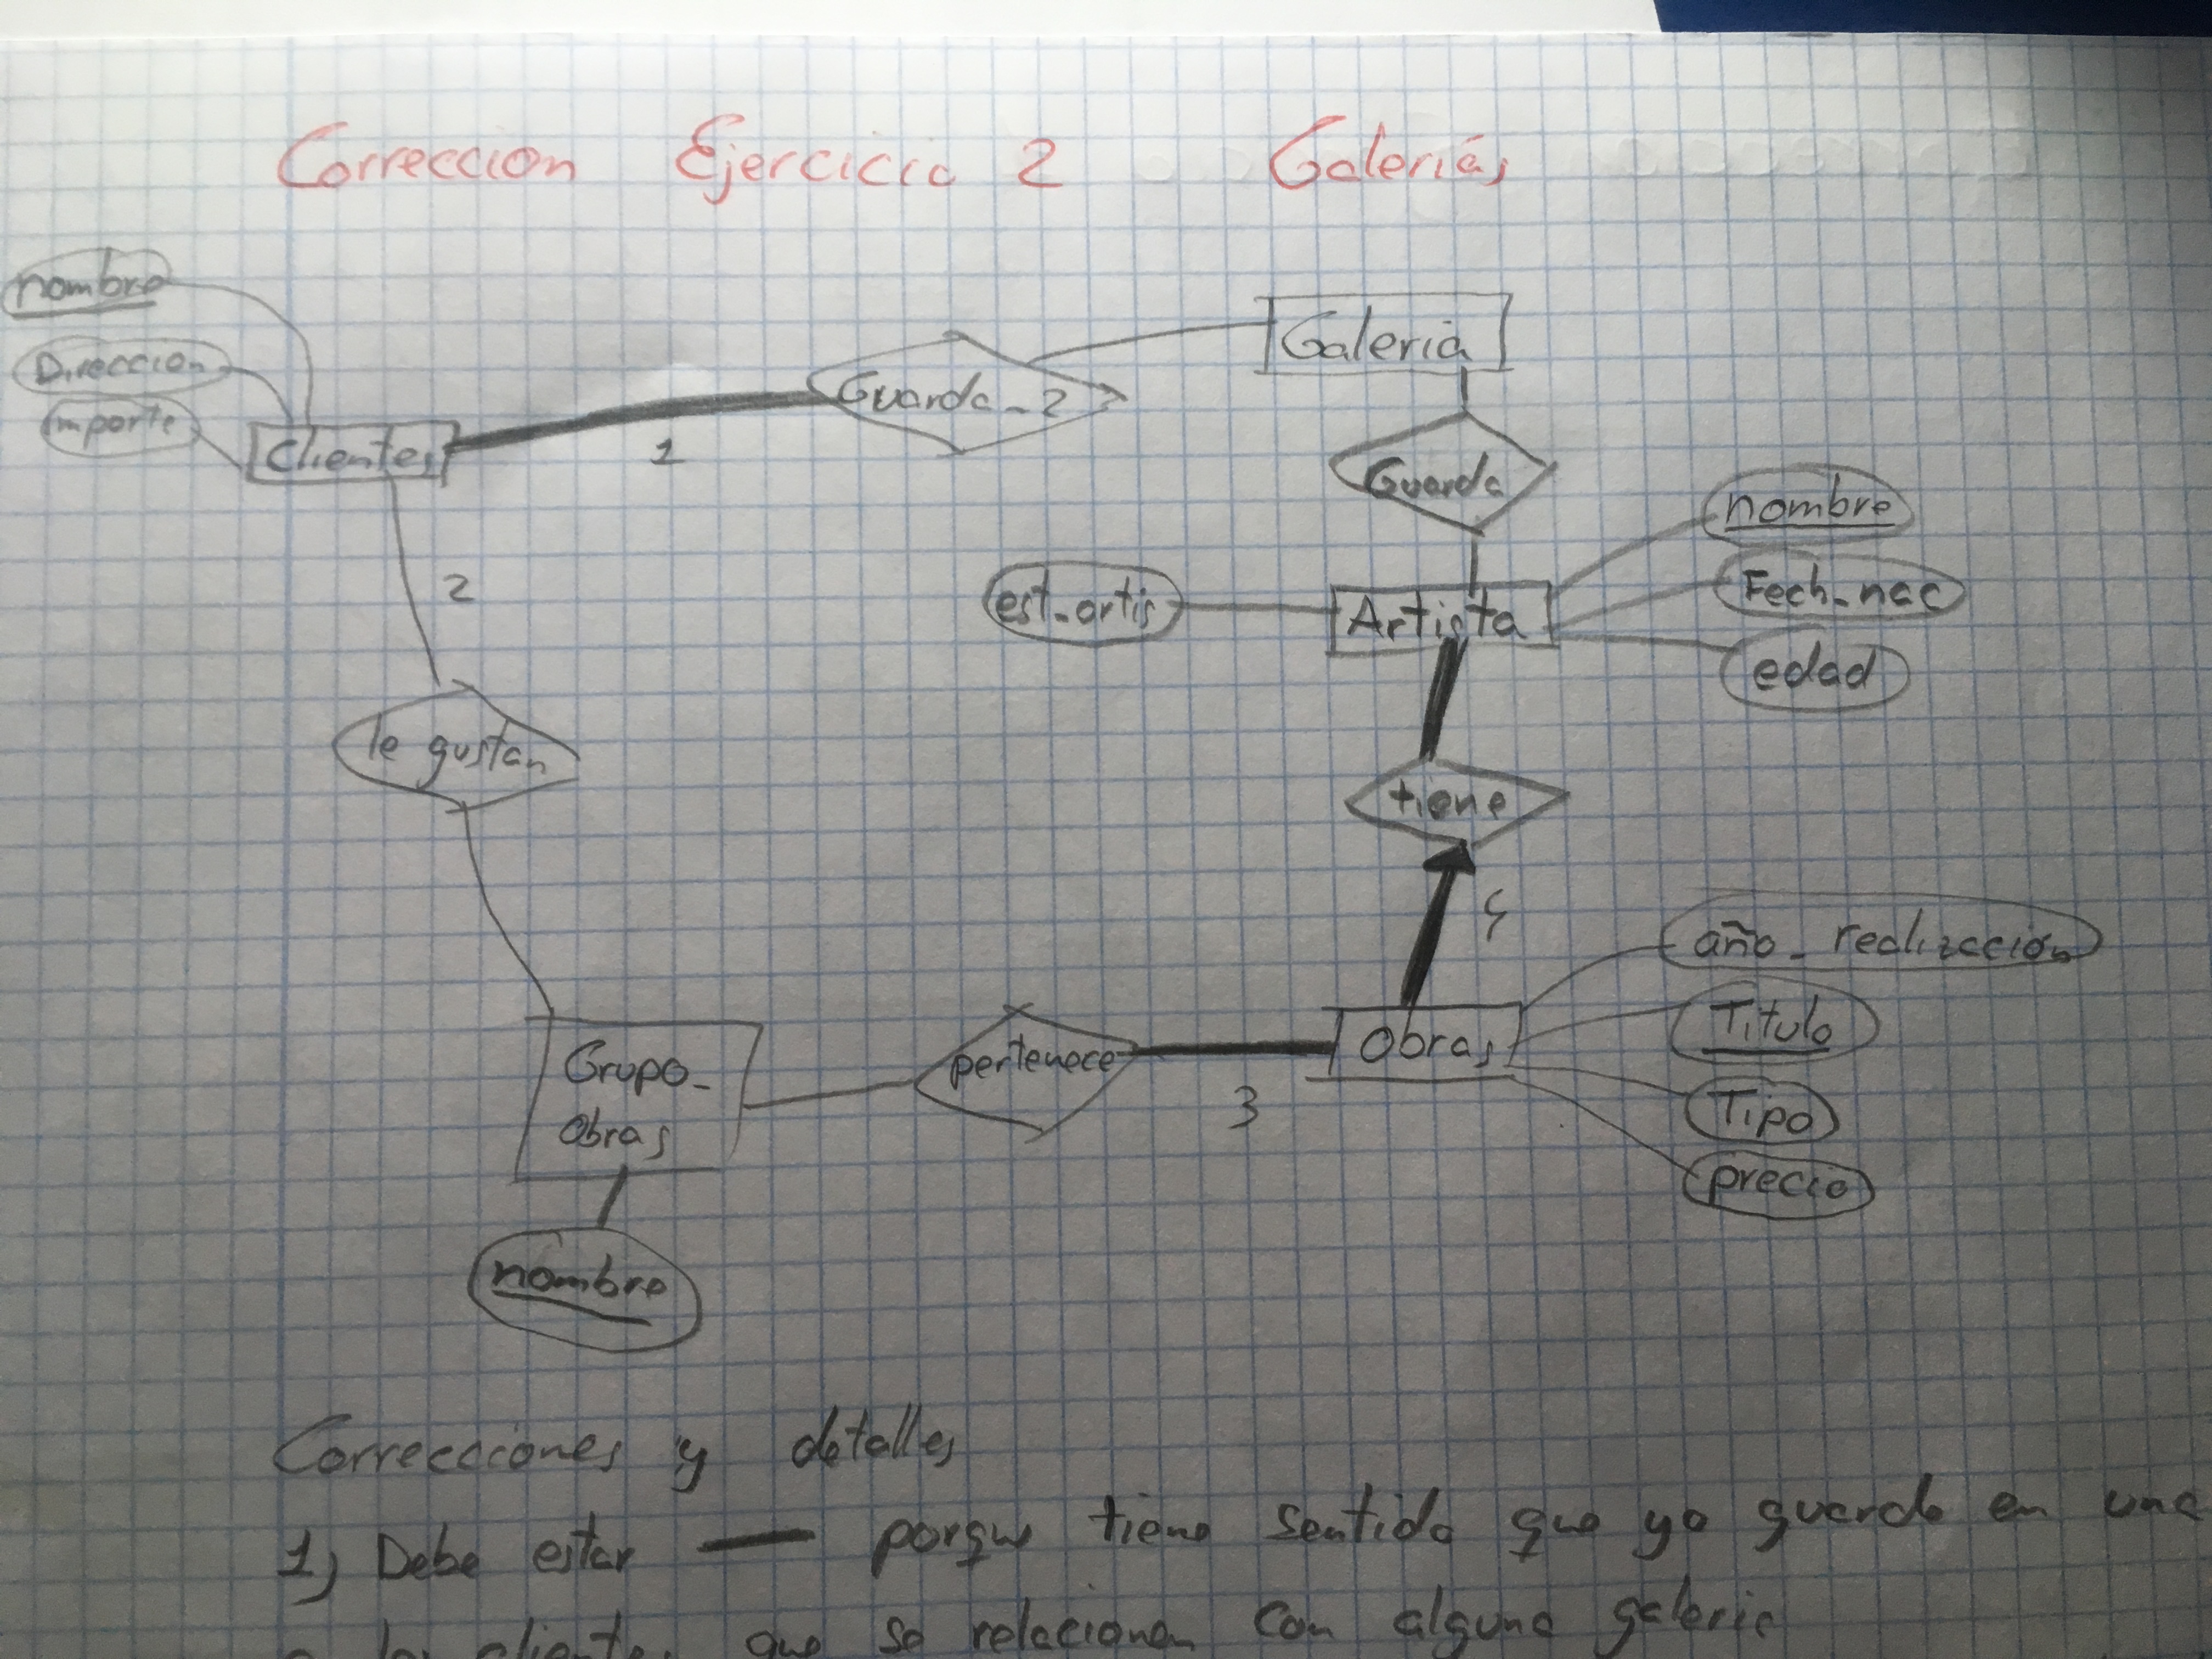 Correccion Ejercicio 2 Galerías
nombre
Direccion
importe
Clientes
1
Guarda_2
Galeria
Guarda
2
est_artis
Artista
nombre
Fech_nac
edad
le gustan
tiene
4
año_realizacción
Titulo
Tipo
precio
Obras
3
pertenece
Grupo_
Obras
nombre
Correcciones y detalles
1) Debe estar — porque tiene sentido que yo guarde en una
a los clientes que se relacionen con alguna galeria